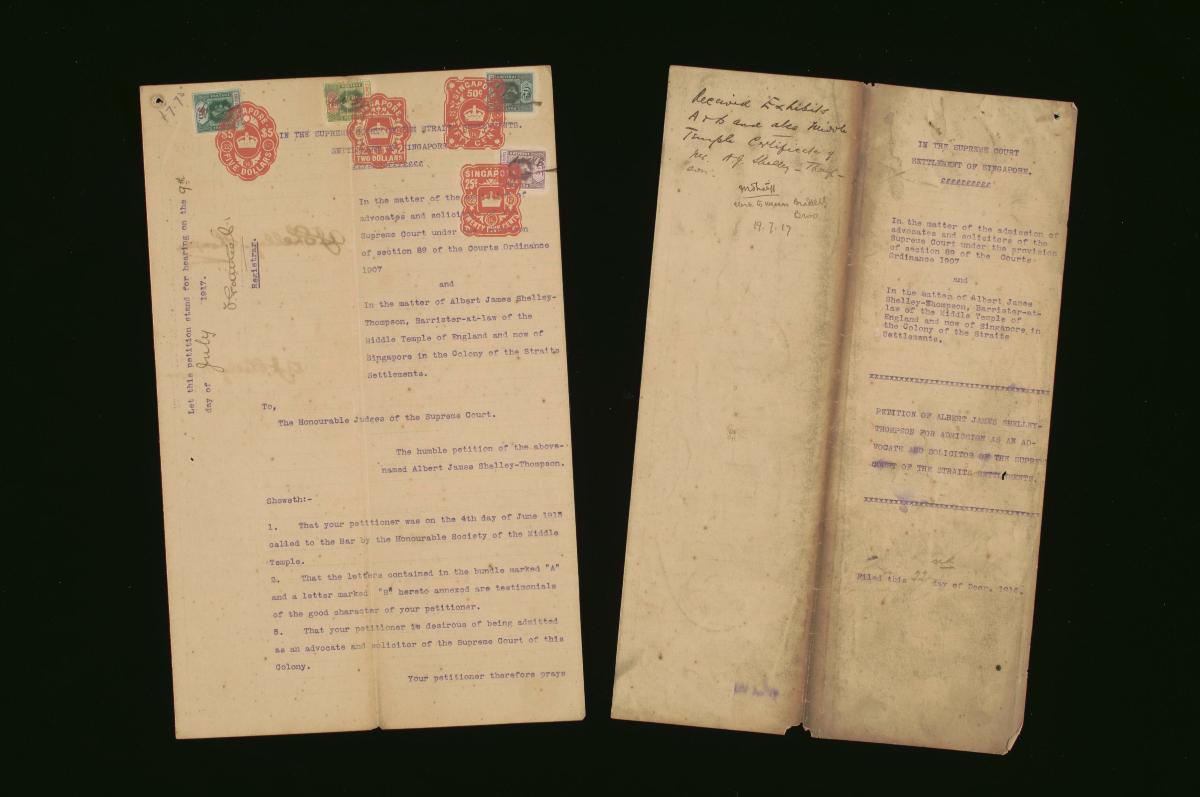 17.7.
SINGAPORE
$5 $5
FIVE DOLLARS
TWO DOLLARS
SINGAPORE
50¢
SINGAPORE
25¢
TWENTY FIVE CENTS
IN THE SUPREME COURT OF THE STRAITS SETTLEMENTS.
SETTLEMENT OF SINGAPORE
Let this petition stand for hearing on the 9th
day of July 1917.
Registrar.
In the matter of the
advocates and solici of
Supreme Court under
of section 89 of the Courts Ordinance
1907
and
In the matter of Albert James Shelley-
Thompson, Barrister-at-law of the
Middle Temple of England and now of
Singapore in the Colony of the Straits
Settlements.
To,
The Honourable Judges of the Supreme Court.
The humble petition of the above-
named Albert James Shelley-Thompson.
Showeth:-
1. That your petitioner was on the 4th day of June 1913
called to the Bar by the Honourable Society of the Middle
Temple.
2. That the letters contained in the bundle marked "A"
and a letter marked "B" hereto annexed are testimonials
of the good character of your petitioner.
3. That your petitioner is desirous of being admitted
as an advocate and solicitor of the Supreme Court of this
Colony.
Your petitioner therefore prays
Received Exhibits
A & B and also Middle
Temple Certificate of
Mr. A.J. Shelley-Thomp-
son.
19.7.17
IN THE SUPREME COURT
SETTLEMENT OF SINGAPORE.
££££££££££
In the matter of the admission of
advocates and solicitors of the
Supreme Court under the provision
of section 89 of the Courts
Ordinance 1907
and
In the matter of Albert James
Shelley-Thompson, Barrister-at-
law of the Middle Temple of
England and now of Singapore in
the Colony of the Straits
Settlements.
xxxxxxxxxxxxxxxxxxxxxxxxxxxxxxxxx
PETITION OF ALBERT JAMES SHELLEY-
THOMPSON FOR ADMISSION AS AN AD-
VOCATE AND SOLICITOR OF THE SUPRE
COURT OF THE STRAITS SETTLEMENTS.
xxxxxxxxxxxxxxxxxxxxxxxxxxxxxxxxx
Filed this 22 day of Decr. 1916.